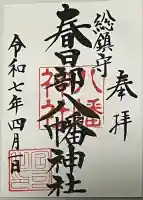 奉拝
総鎮守
春日部八幡神社
八幡神社
令和七年四月